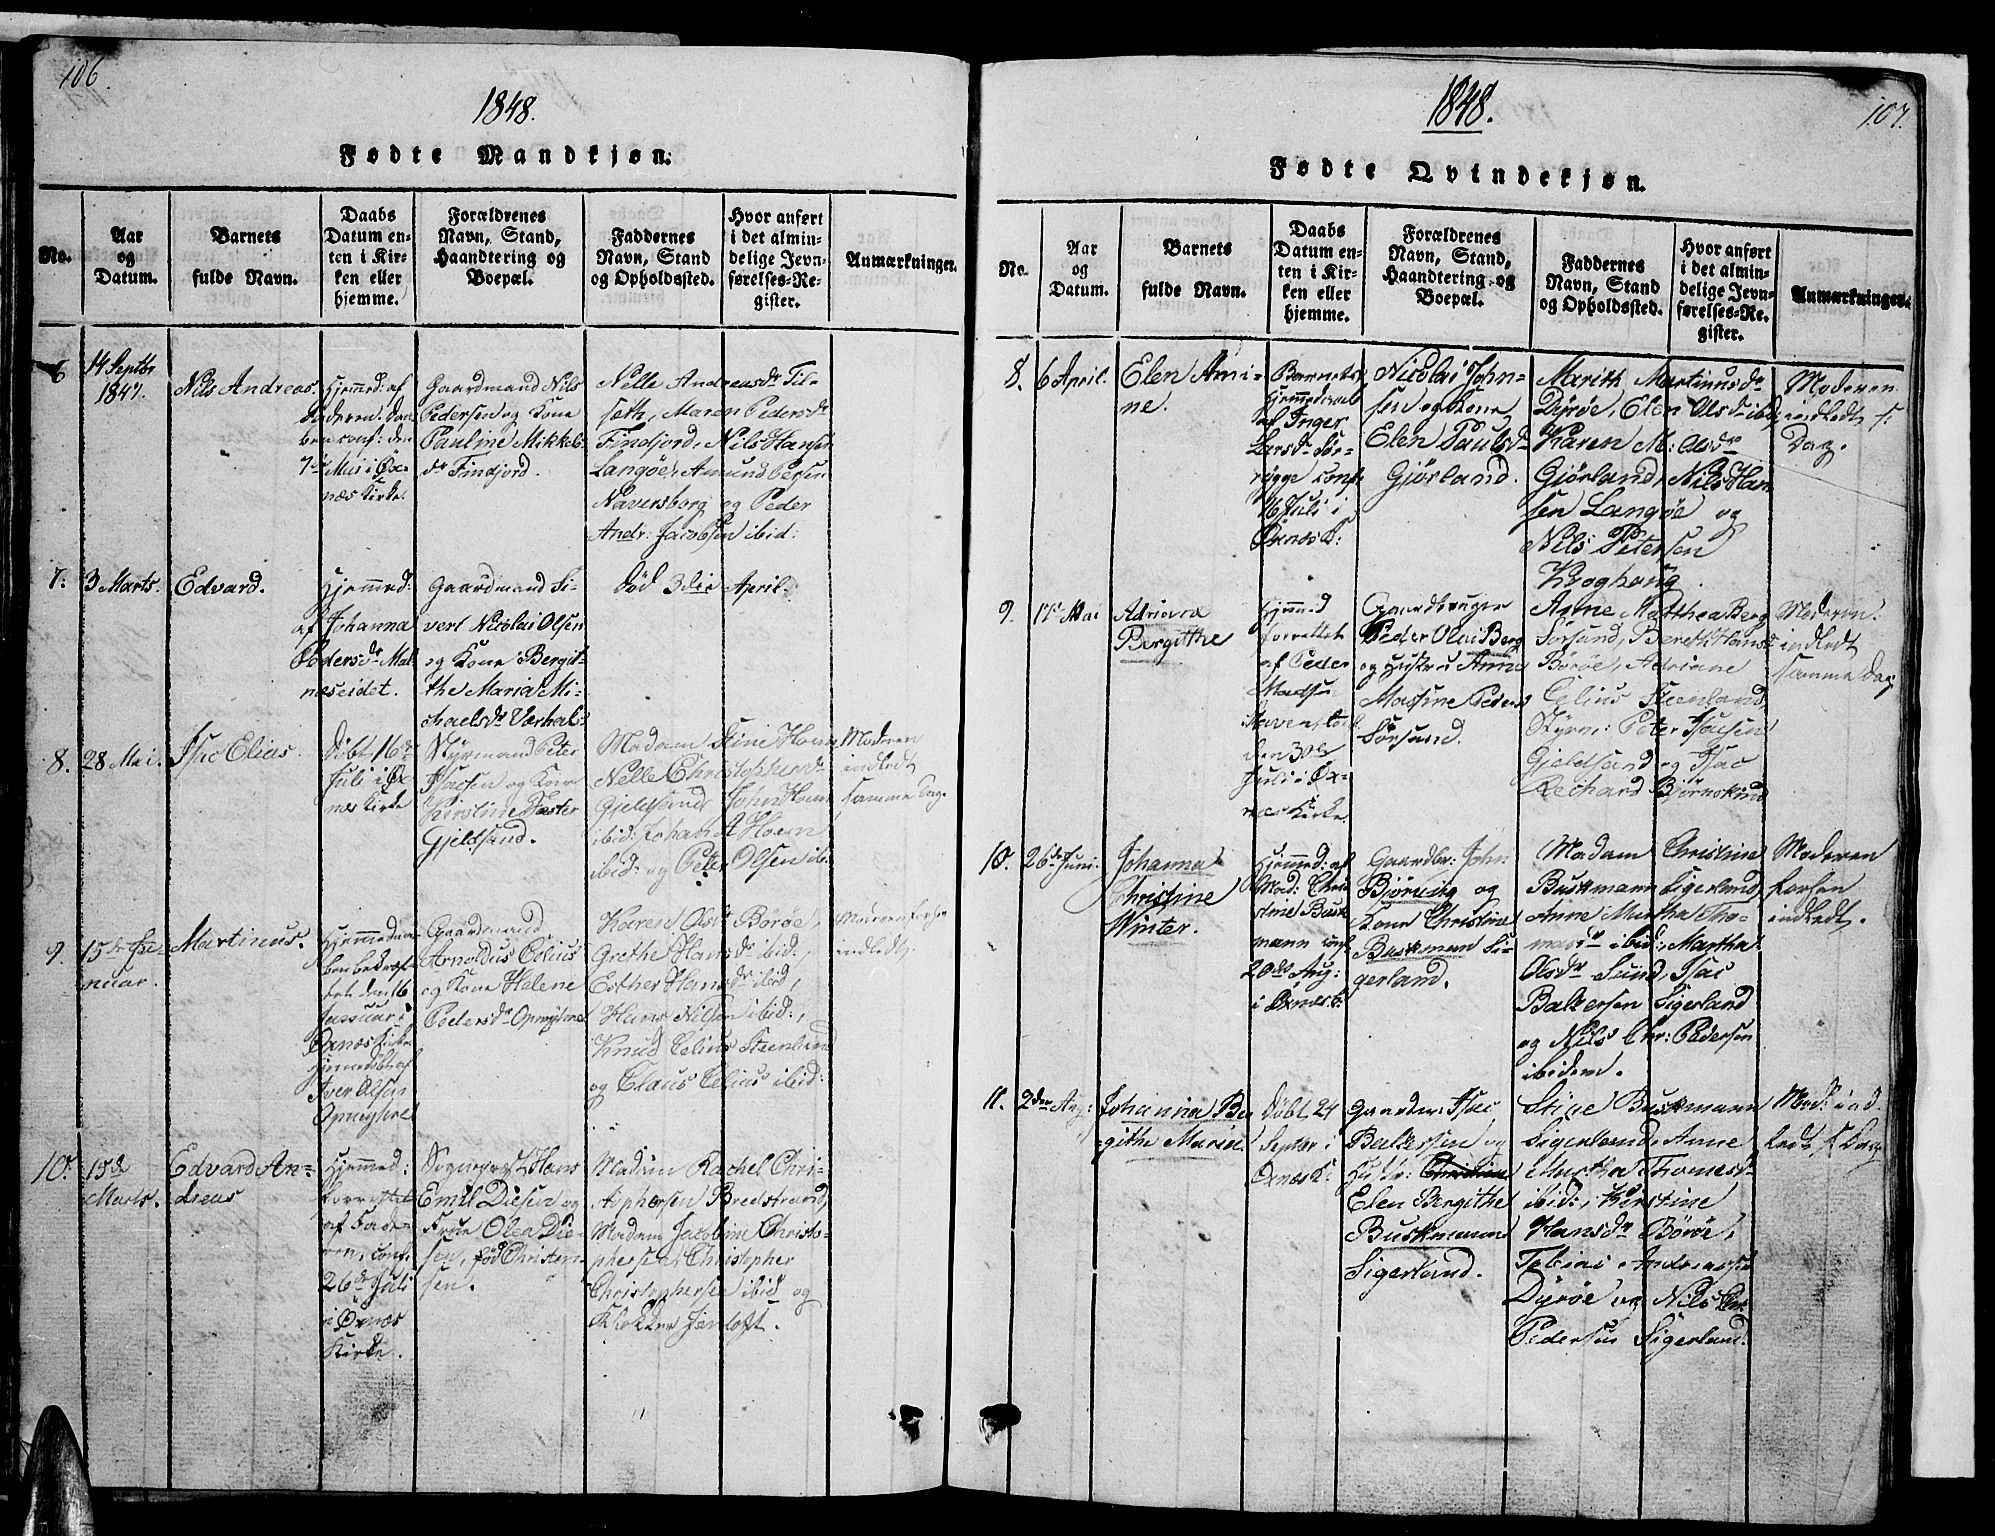 106.
1848.
Fødte Mandkjøn.
No.
Aar
og
Datum.
Barnets
fulde Navn.
Daabs
Datum en-
ten i Kir-
ken eller
hjemme.
Forældrenes
Navn, Stand,
Haandtering og
Boepæl.
Faddernes
Navn, Stand
og Opholdssted.
Hvor anført
i det almin-
delige Jevn-
førelses-Re-
gister.
Anmærkninger.
6
14 Septbr
1847.
Nils Andreas.
Hjemmed: af
Faderen: Daa-
ben conf: den
7de Mai i Øx-
næs Kirke.
Gaardmand Nils
Pedersen og Kone
Pauline Mikkels-
dr Findjord.
Nelle Andreasdr Til-
seth, Maren Pedersdr
Findjord, Nils Hansen
Langøe, Amund Persen
Naversborg og Peder
Andr: Jacobsen ibid:
7.
3 Marts.
Edvard.
Hjemmed:
af Johanna
Pedersdr Mal-
næseidet.
Gaardmand Si-
vert Nicolai Olsen
og Kone Bergit-
the Maria Mi-
chaelsdr Værhals
død 3die April.
8.
28 Mai.
Isac Elias.
Døbt 16de
Juli i Øx-
næs Kirke
Styrmand Peter
Isacsen og Kone
Kirstine Falster
Gjeldsand.
Madam Stine Hoem
Nelle Christophersdr
Gjeldsand John Hoem
ibid: Johan A Hoem
ibid: og Peter Olsen ib:
Moderen
indledt
samme Dag.
9.
15de Ja-
nuar.
Martinus.
Hjemmedaa-
ben bekræf-
tet den 16
Januar i
Øxnæs Kirke
hjemmedøbt af
Iver Olsen
Opmyhre
Gaardmand
Arnoldus Celius
og Kone Helene
Pedersdr Opmyhre
Karen Olsdr Børøe,
Grethe Hansdr ibid.,
Esther Hansdr ibid,
Hans Nilsen ibid:,
Knud Celius Steenland
og Claus Celius ibid:
Moderen forhen
indledt
10.
15de
Marts.
Edvard An-
dreas
Hjemmed:
forrettet
af Fade-
ren, conf:
26de Juli
i Øxnæs
Kirke.
Sognepræst Hans
Emil Diesen og
Frue Olea Die-
sen, fød Christen-
sen.
Madam Rachel Chri-
stophersen Bredstrand,
Madam Jacobine Christo-
phersen, Christopher
Christophersen ibid og
Klokker Jentoft.
107.
1848.
Fødte Qvindekjøn.
No.
Aar
og
Datum.
Barnets
fulde Navn.
Daabs
Datum en-
ten i Kir-
ken eller
hjemme.
Forældrenes
Navn, Stand,
Haandtering og
Boepæl.
Faddernes
Navn, Stand
og Opholdssted.
Hvor anført
i det almin-
delige Jevn-
førelses-Re-
gister.
Anmærkninger.
8.
6 April.
Elen Ami-
ne.
Barnets
Hjemmedaab
af Inger
Larsdr Sør-
rygge conf:
16 Juli i
Øxnæs K:
Nicolai John-
sen og Kone
Elen Paulsdr
Gjørland.
Marith Martinusdr
Dyrøe, Elen Olsdr ibid,
Karen M: Olsdr
Gjørland, Nils Han-
sen Langøe og
Nils Petersen
Kroghøug.
Moderen
indledt s:
Dag.
9.
17 Mai
Adriana
Bergitthe
Hjemmed
forrettet
af Peder
den 30te
Juli i Øx-
næs Kirke.
Gaardbruger
Peder Olai Berg
og Hustru Anne
Martine Peders
Sørsand.
Anne Matthea Berg
Sørsund, Bereth Hansdr
Børøe, Adriane
Celius Steenland,
Styrm: Peter Isacsen
Gjeldsand og Isac
Rechard Bjørnskind
Moderen
indledt
samme Dag
10.
26de Juni.
Johanna
Christine
Winter.
Hjemmed: af
Mad: Chri-
stine Busk-
mann conf
20de Aug:
i Øxnæs K:
Gaardbr: John
Bjørvig og
Kone Christine
Buskman Si-
gerland.
Madam Christine
Buskmann Sigerland,
Anne Martha Tho-
masdr ibid:, Martha
Olsdr Sund, Isac
Baltersen Sigerland
og Nils Chr: Pedersen
ibidem.
Moderen
forhen
indledt.
11.
2den Aug:
Johanna Ber-
githe Marie.
Døbt 24
Septbr i
Øxnæs K:
Gaardbr: Isac
Baltersen og
Hustr: Christine
Elen Bergithe
Buskmann
Sigerland.
Stine Buskmann
Sigerland, Anne
Martha Thomasdr
ibid:, Kirstine
Hansdr Børøe,
Tobias Andreassen
Dyrøe og Nils Chr
Pedersen Sigerland.
Mod: ind-
ledt s: Dag